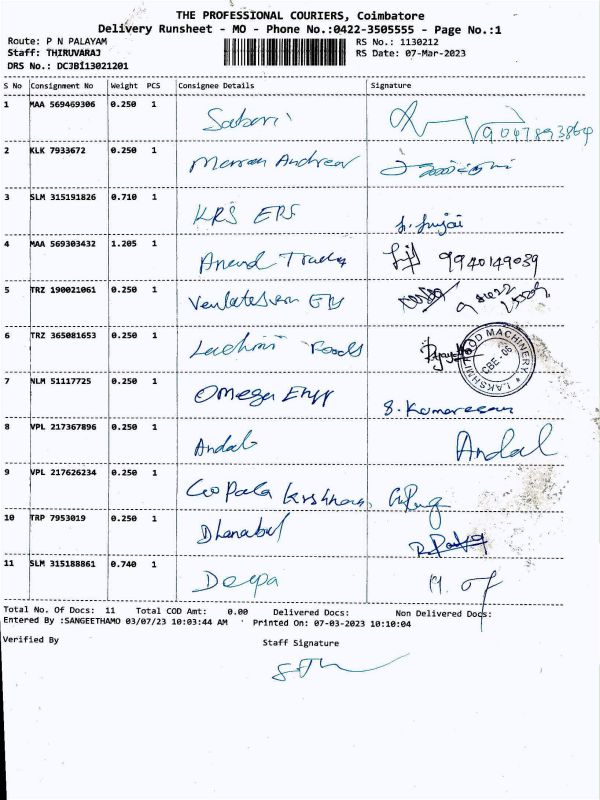 THE PROFESSIONAL COURIERS, Coimbatore
Delivery Runsheet - MO - Phone No.:0422-3505555 - Page No.:1
Route: P N PALAYAM RS No.: 1130212
Staff: THIRUVARAJ RS Date: 07-Mar-2023
DRS No.: DCJB113021201
S No Consignment No Weight PCS Consignee Details Signature
1 MAA 569469306 0.250 1 Saberi
2 KLK 7933672 0.250 1
3 SLM 315191826 0.710 1 KRS ERS
4 MAA 569303432 1.205 1 Anand 9940149039
5 TRZ 190021061 0.250 1
6 TRZ 365081653 0.250 1 Foods
LAKSHMI FOOD MACHINERY
CBE - 06
7 NLM 51117725 0.250 1 Omega S. Kumaresan
8 VPL 217367896 0.250 1 Andal Andal
9 VPL 217626234 0.250 1 Gopala
10 TRP 7953019 0.250 1
11 SLM 315188861 0.740 1 Deepa
Total No. Of Docs: 11 Total COD Amt: 0.00 Delivered Docs: Non Delivered Docs:
Entered By :SANGEETHAMO 03/07/23 10:03:44 AM Printed On: 07-03-2023 10:10:04
Verified By Staff Signature